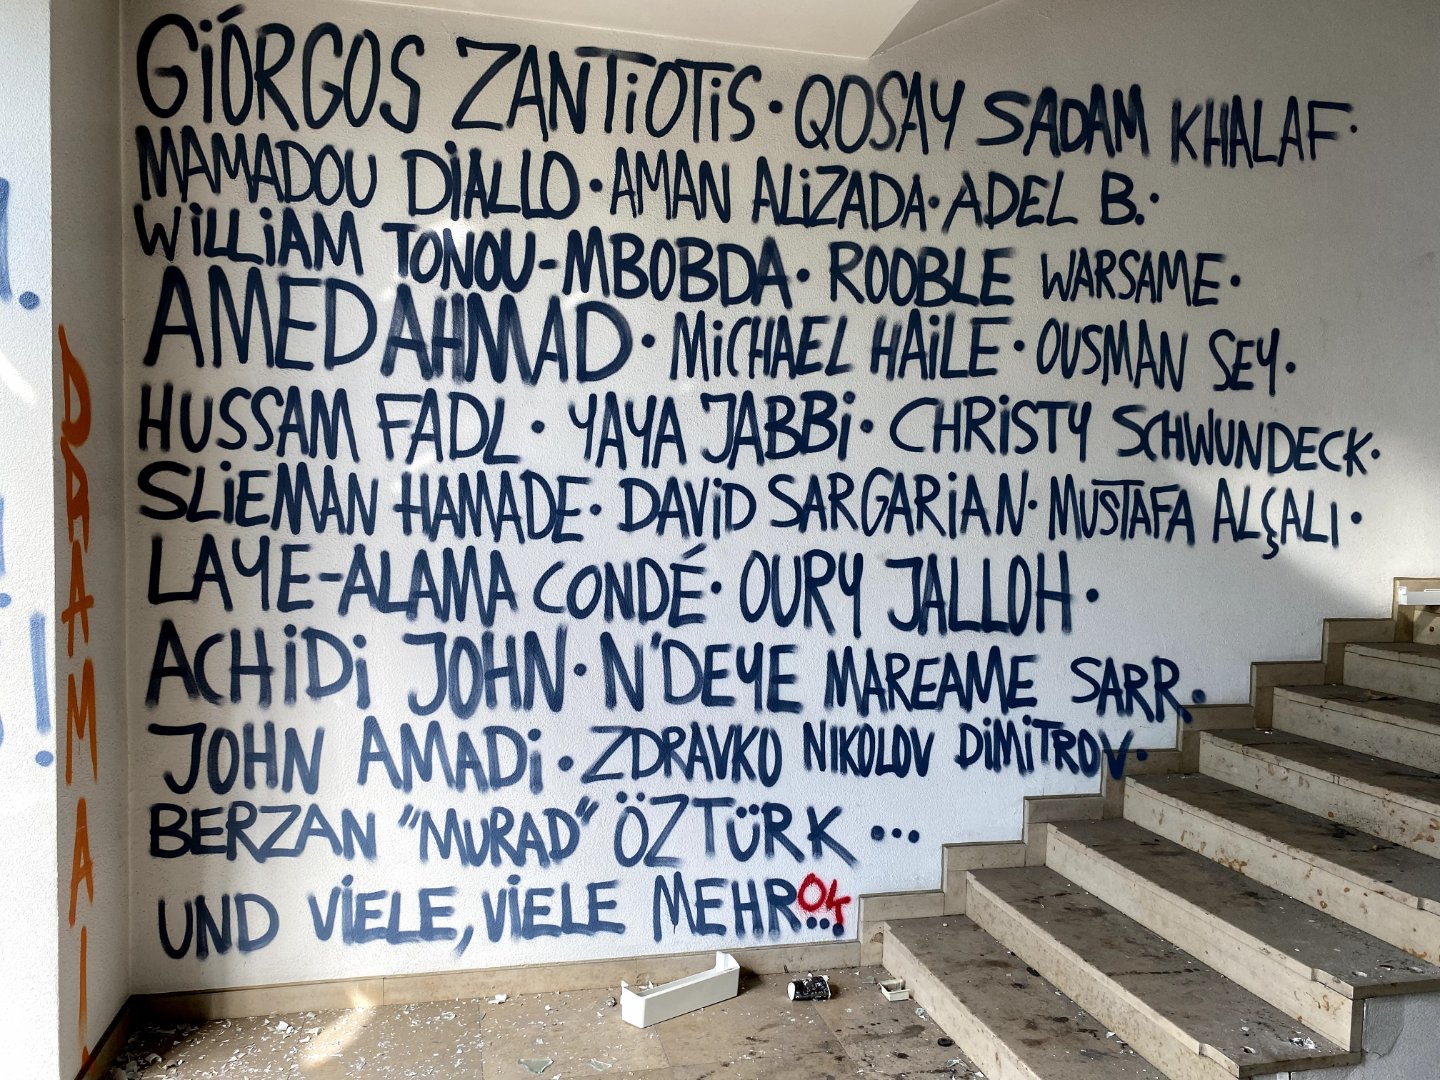 GiÓRGOS ZANTiOTiS · QOSAY SADAM KHALAF ·
MAMADOU DiALLO · AMAN ALiZADA · ADEL B. ·
WiLLiAM TONOU-MBOBDA · ROOBLE WARSAME ·
AMED AHMAD · MiCHAEL HAiLE · OUSMAN SEY ·
HUSSAM FADL · YAYA JABBi · CHRiSTY SCHWUNDECK ·
SLiEMAN HAMADE · DAViD SARGARiAN · MUSTAFA ALÇALI ·
LAYE-ALAMA CONDÉ · OURY JALLOH ·
ACHiDi JOHN · N'DEYE MAREAME SARR ·
JOHN AMADi · ZDRAVKO NIKOLOV DiMiTROV ·
BERZAN "MURAD" ÖZTÜRK ...
UND ViELE, ViELE MEHR...
04
DRAMAI